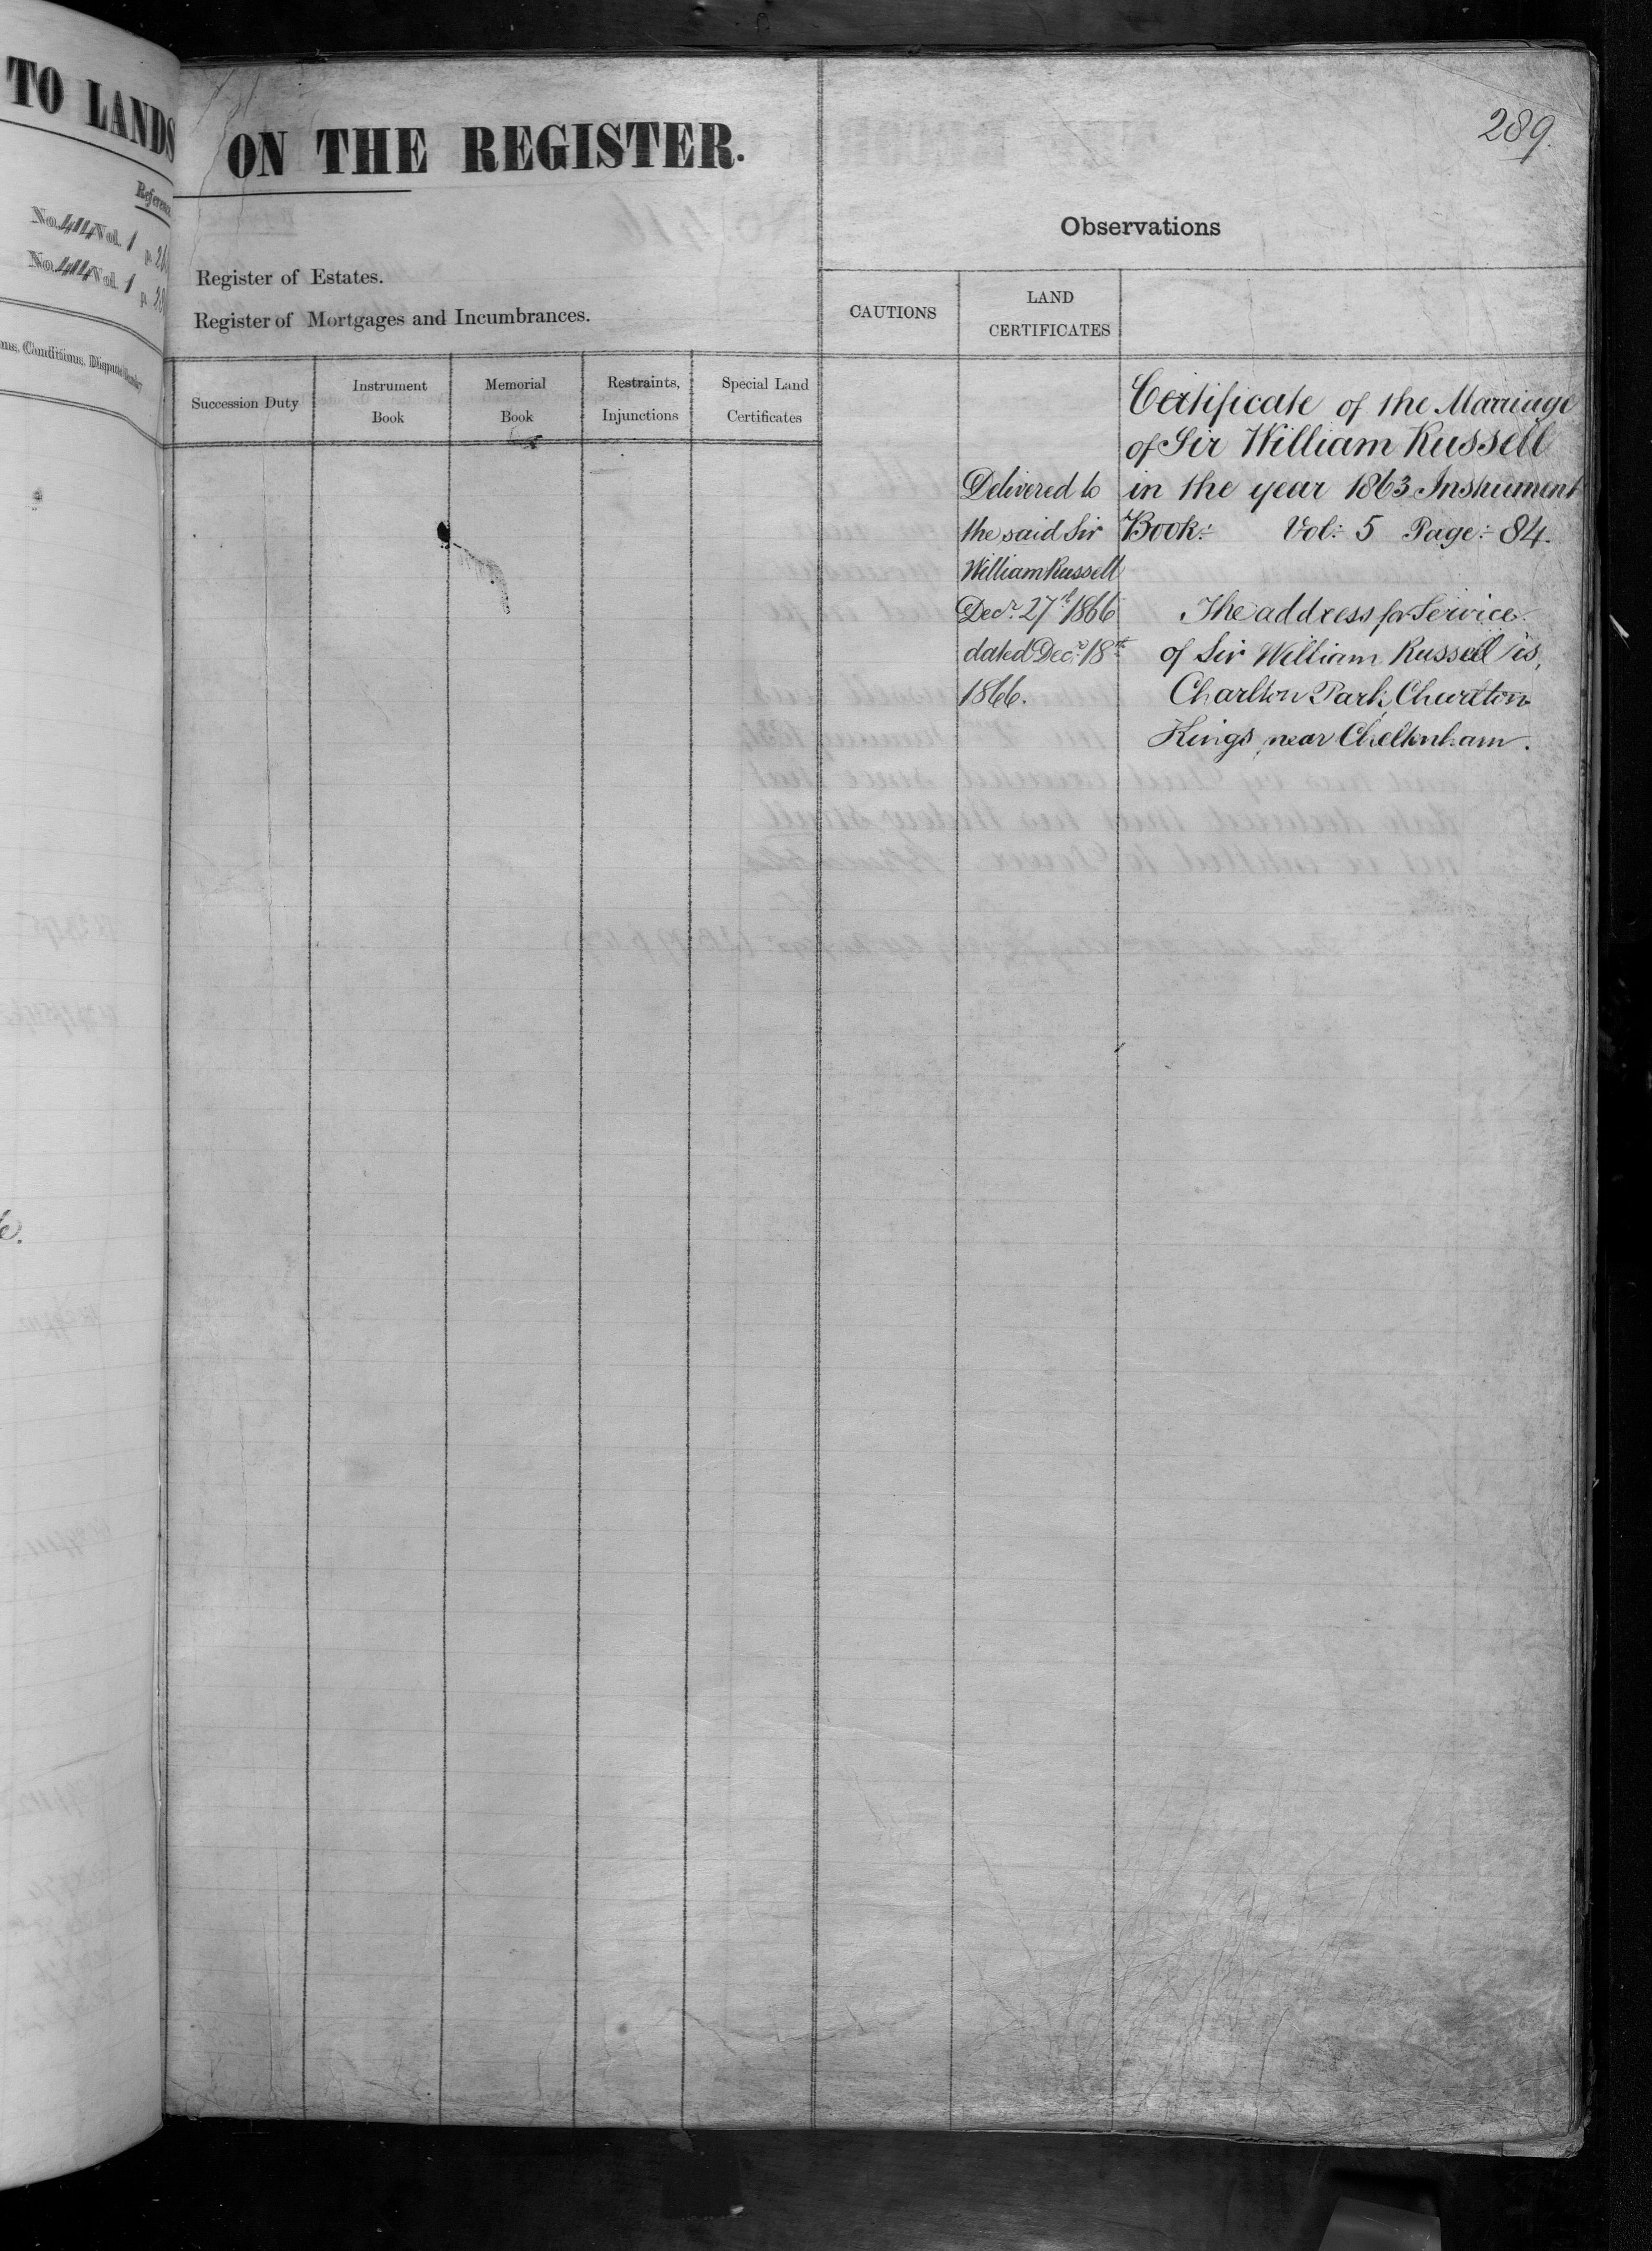 TO LANDS
No. 414 Vol. 1
No. 414 Vol. 1
ON THE REGISTER.
289.
Register of Estates.
Register of Mortgages and Incumbrances.
Observations
CAUTIONS
LAND
CERTIFICATES
Succession Duty
Instrument
Book
Memorial
Book
Restraints,
Injunctions
Special Land
Certificates
Delivered to
the said Sir
William Russell
Decr. 27th 1866
dated Decr. 18th
1866.
Certificate of the Marriage
of Sir William Russell
in the year 1863 Instrument
Book:- Vol:- 5 Page:- 84.
The address for Service
of Sir William Russell is,
Charlton Park, Charlton
Kings, near Cheltenham.